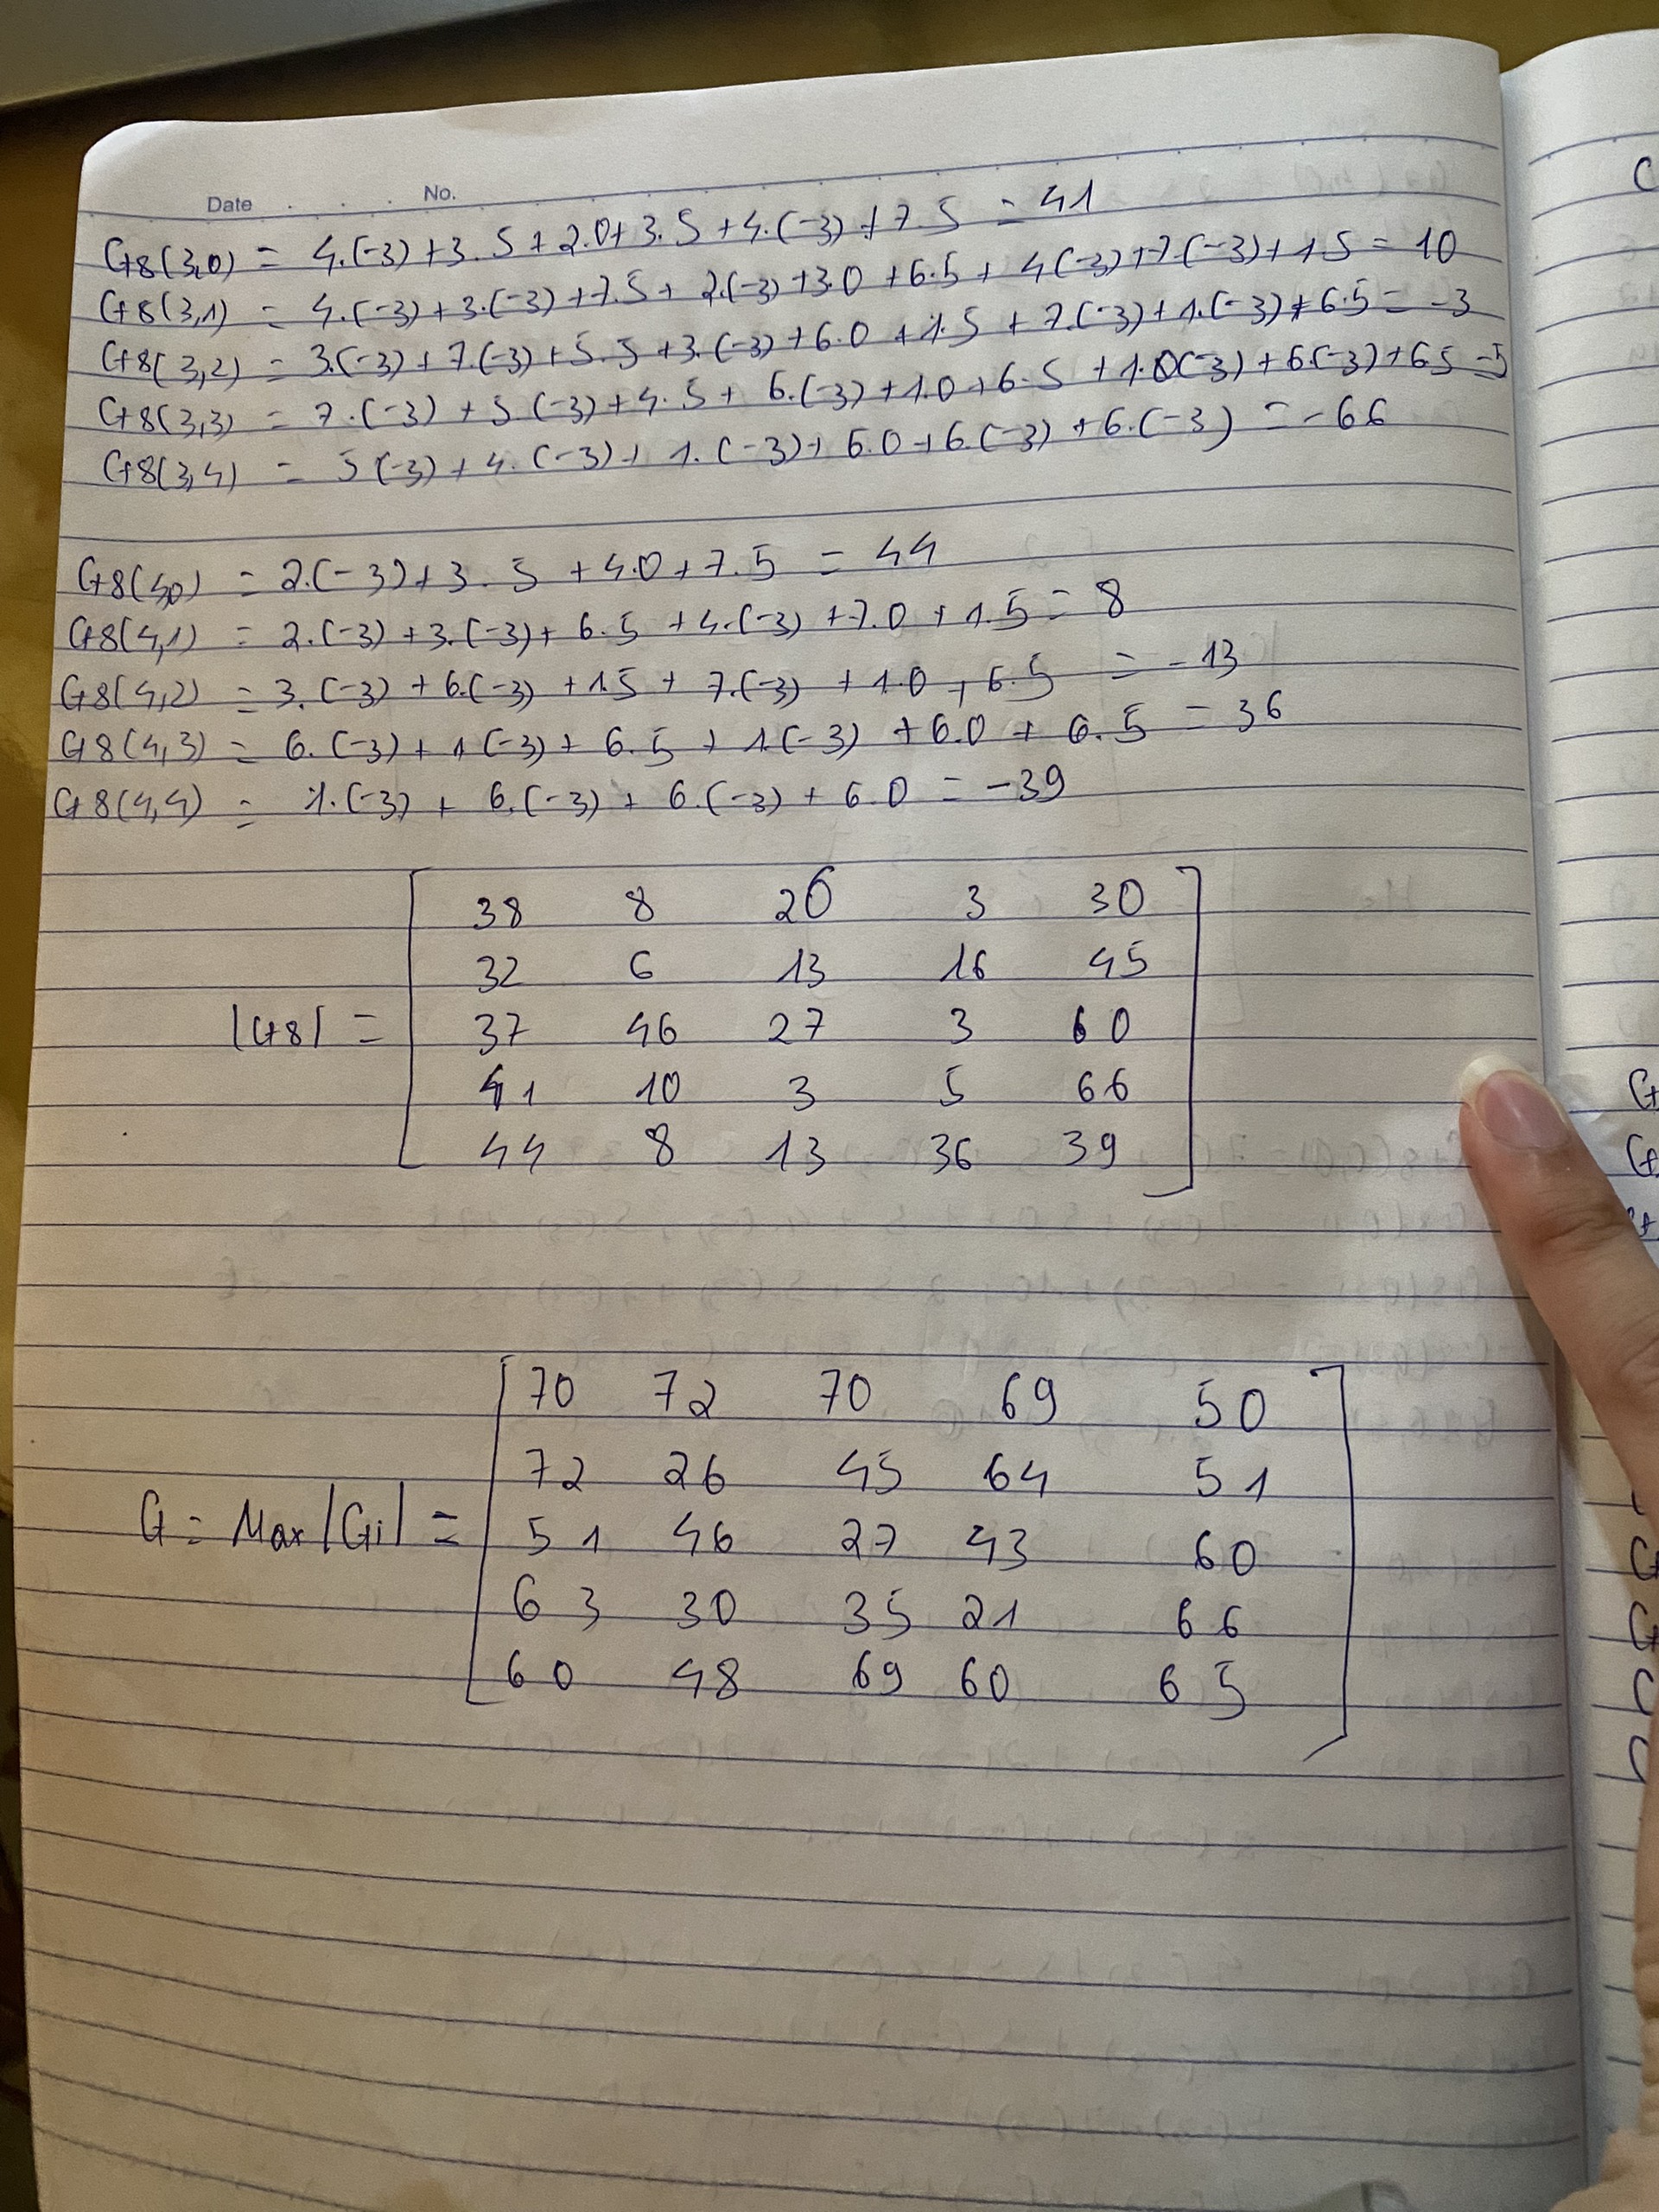 Date No.
G8(3,0) = 4.(-3) + 3.5 + 2.0 + 3.5 + 4.(-3) + 7.5 = 41
G8(3,1) = 4.(-3) + 3.(-3) + 7.5 + 2.(-3) + 3.0 + 6.5 + 4(-3) + 7.(-3) + 1.5 = 10
G8(3,2) = 3.(-3) + 7.(-3) + 5.5 + 3.(-3) + 6.0 + 1.5 + 7.(-3) + 1.(-3) + 6.5 = -3
G8(3,3) = 7.(-3) + 5(-3) + 4.5 + 6.(-3) + 1.0 + 6.5 + 1.(-3) + 6.(-3) + 6.5 = 5
G8(3,4) = 5(-3) + 4.(-3) + 1.(-3) + 6.0 + 6.(-3) + 6.(-3) = -66
G8(4,0) = 2.(-3) + 3.5 + 4.0 + 7.5 = 44
G8(4,1) = 2.(-3) + 3.(-3) + 6.5 + 4.(-3) + 7.0 + 1.5 = 8
G8(4,2) = 3.(-3) + 6.(-3) + 1.5 + 7.(-3) + 1.0 + 6.5 = -13
G8(4,3) = 6.(-3) + 1(-3) + 6.5 + 1.(-3) + 6.0 + 6.5 = 36
G8(4,4) = 1.(-3) + 6.(-3) + 6.(-3) + 6.0 = -39
38 8 26 3 30
32 6 13 16 45
|G8| = 37 46 27 3 60
41 10 3 5 66
44 8 13 36 39
70 72 70 69 50
72 26 45 64 51
G = Max|Gi| = 51 46 27 43 60
63 30 35 21 66
60 48 69 60 65